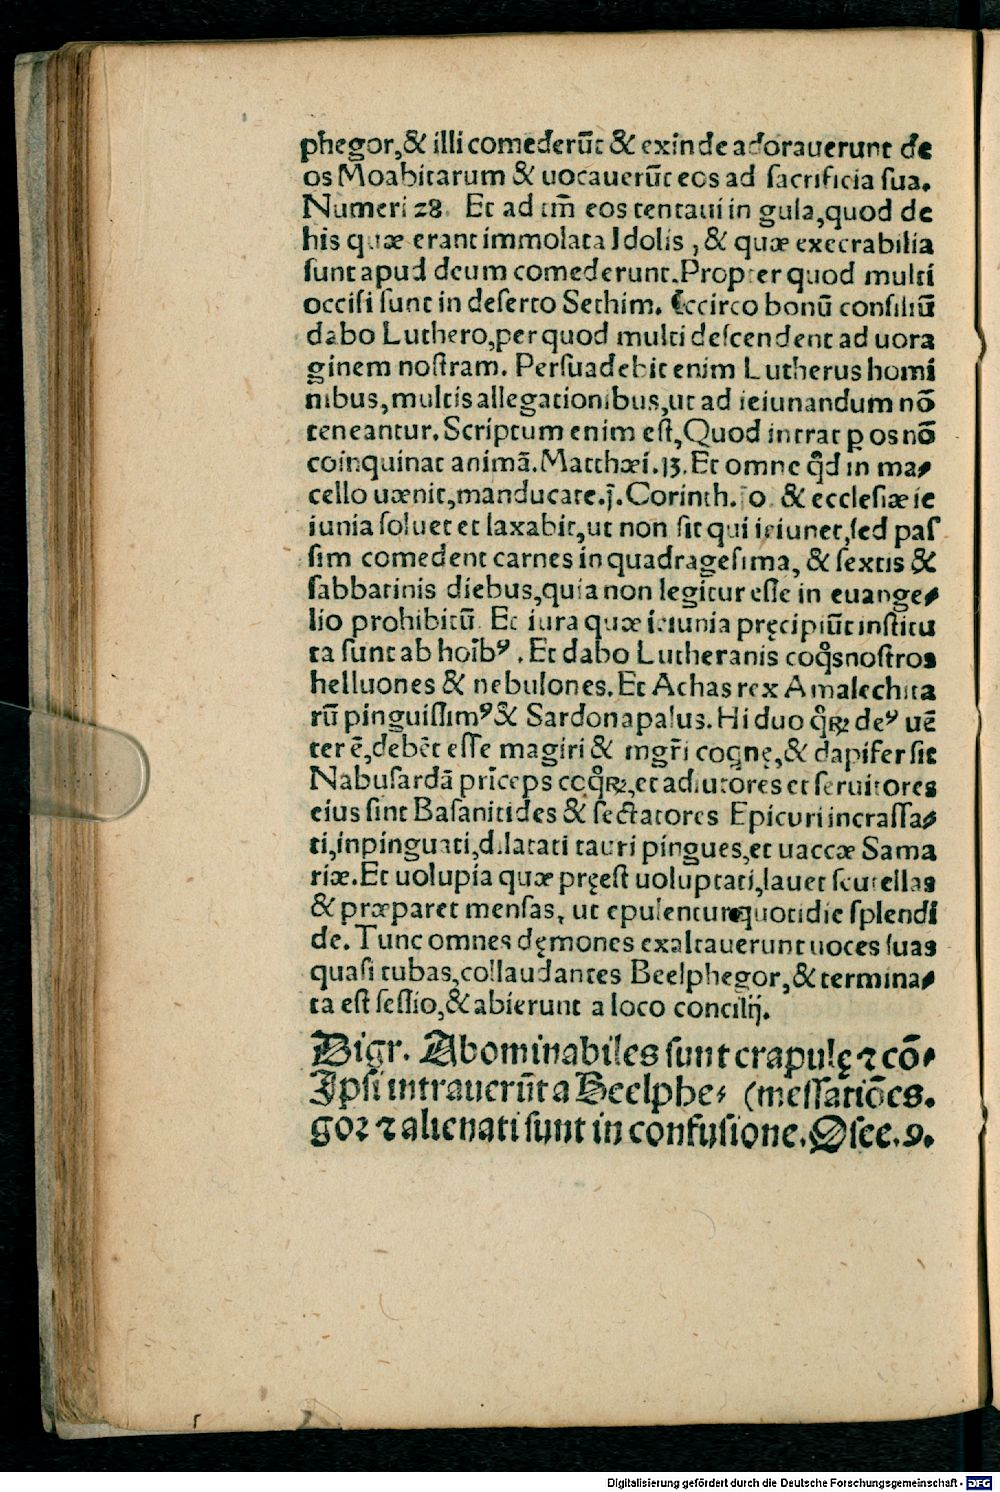 phegor,& illi comederūt & exinde adorauerunt de
os Moabitarum & uocauerūt eos ad sacrificia sua.
Numeri 28. Et ad tm̄ eos tentaui in gula,quod de
his quæ erant immolata Idolis , & quæ execrabilia
sunt apud deum comederunt.Propter quod multi
occisi sunt in deserto Sethim. Iccirco bonū consiliū
dabo Luthero,per quod multi descendent ad uora
ginem nostram. Persuadebit enim Lutherus homi
nibus,multis allegationibus,ut ad ieiunandum nō
teneantur.Scriptum enim est,Quod intrat ꝑ os nō
coinquinat animā.Matthæi.13.Et omne qd̄ in ma⸗
cello uænit,manducate.j.Corinth.10. & ecclesiæ ie
iunia soluet et laxabit,ut non sit qui ieiunet,sed pas
sim comedent carnes in quadragesima, & sextis &
sabbatinis diebus,quia non legitur esse in euange⸗
lio prohibitū. Et iura quæ ieiunia pręcipiūt institu
ta sunt ab hoībꝰ. Et dabo Lutheranis coq̄s nostros
helluones & nebulones.Et Achas rex Amalechita
rū pinguissimꝰ & Sardonapalus. Hi duo q̄ꝝ deꝰ uē
ter ē,debēt esse magiri & mgr̄i coqnę,& dapifer sit
Nabusardā prīceps coq̄ꝝ,et adiutores et seruitores
eius sint Basanitides & sectatores Epicuri incrassa⸗
ti,inpinguati,dilatati tauri pingues,et uaccæ Sama
riæ.Et uolupia quæ pręest uoluptati,lauet scutellas
& præparet mensas, ut epulentur quotidie splendi
de. Tunc omnes dęmones exaltauerunt uoces suas
quasi tubas,collaudantes Beelphegor,& termina⸗
ta est sessio,& abierunt a loco concilij.
Digr. Abominabiles sunt crapulę ⁊ cō⸗
Ipsi intrauerūt a Beelphe⸗ (messatiōes.
gor ⁊ alienati sunt in confusione.Osee.9.
Digitalisierung gefördert durch die Deutsche Forschungsgemeinschaft - DFG